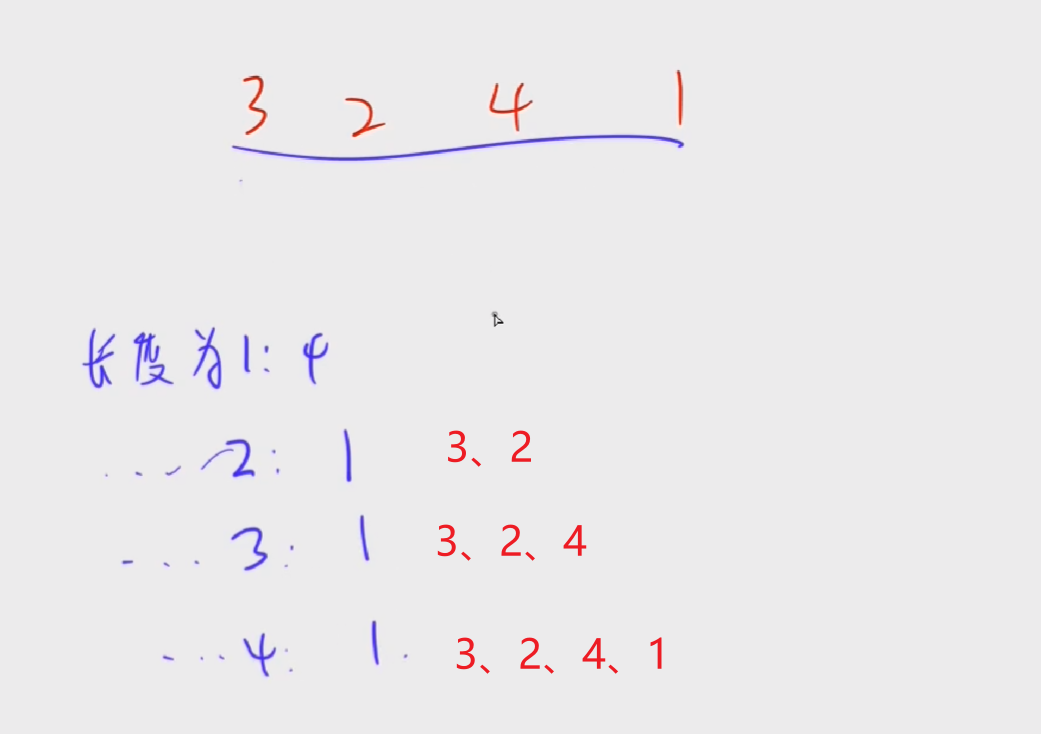 3 2 4 1
长度为1: 4
...2: 1 3、2
...3: 1 3、2、4
...4: 1. 3、2、4、1